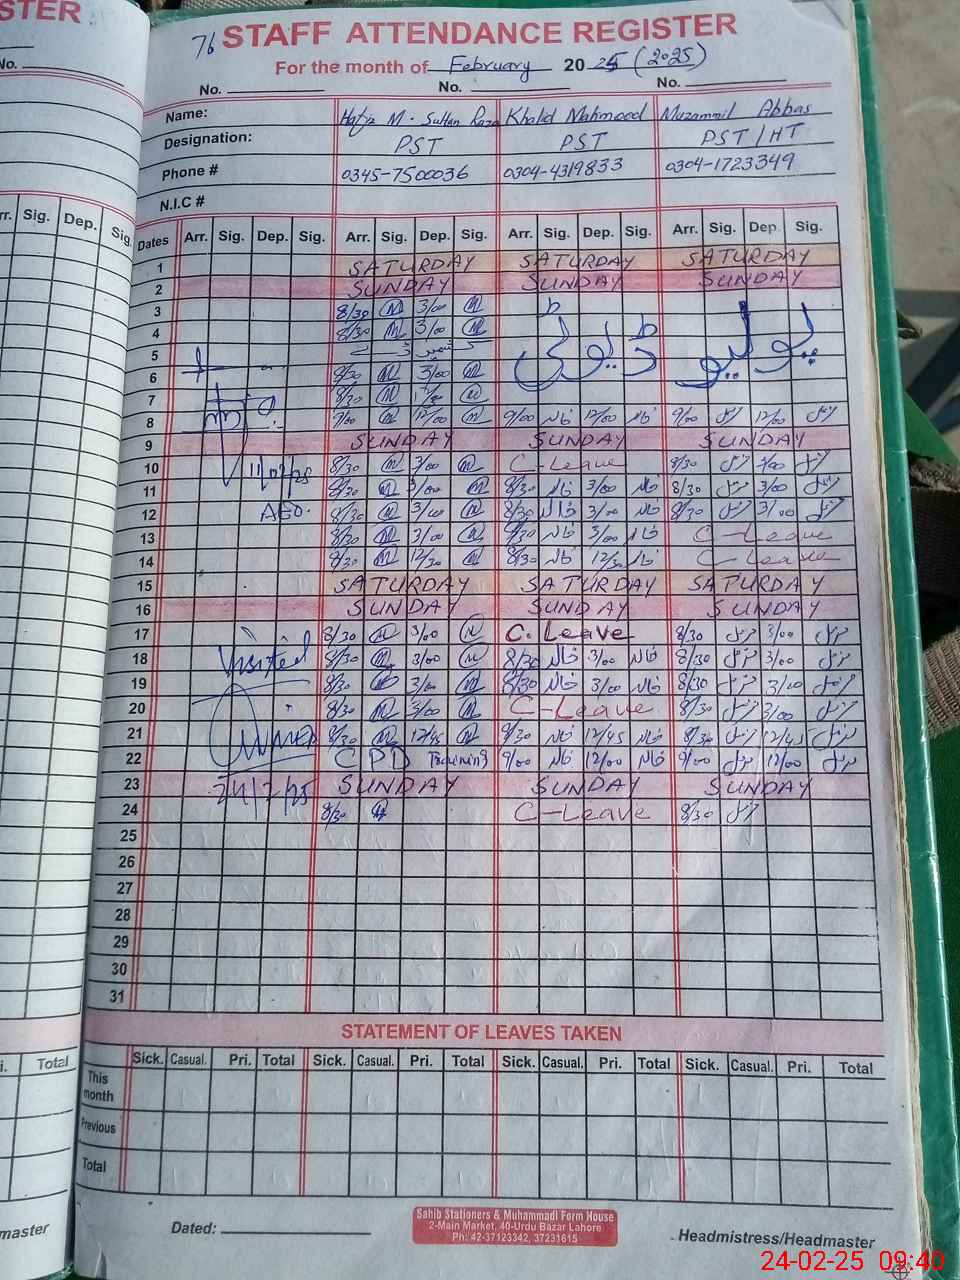 STER
76 STAFF ATTENDANCE REGISTER
For the month of February 2025 (2025)
No. No. No.
Name: Hafiz M. Sultan Raza Khalid Mahmood Muzammil Abbas
Designation: PST PST PST/HT
Phone # 0345-7500036 0304-4319833 0304-1723349
N.I.C #
Sig. Dep. Sig.
Dates Arr. Sig. Dep. Sig. Arr. Sig. Dep. Sig. Arr. Sig. Dep. Sig. Arr. Sig. Dep. Sig.
1 SATURDAY SATURDAY SATURDAY
2 SUNDAY SUNDAY SUNDAY
3 8/30 3/00
4 8/30 3/00
پولیو ڈیوٹی
5 کشمیر ڈے
6 8/30 3/00
7 8/30
8 9/00 12/00 9/00 خالد 12/00 خالد 9/00 12/00
9 SUNDAY SUNDAY SUNDAY
10 8/30 3/00 C-Leave 8/30 3/00
11 8/30 3/00 8/30 خالد 3/00 خالد 8/30 3/00
12 8/30 3/00 8/30 خالد 3/00 خالد 8/30 3/00
AEO.
13 8/30 3/00 8/30 خالد 3/00 خالد C-Leave
14 8/30 12/30 8/30 خالد 12/30 خالد C-Leave
15 SATURDAY SATURDAY SATURDAY
16 SUNDAY SUNDAY SUNDAY
17 8/30 3/00 C. Leave 8/30 3/00
18 Visited 8/30 3/00 8/30 خالد 3/00 خالد 8/30 3/00
19 8/30 3/00 8/30 خالد 3/00 خالد 8/30 3/00
20 8/30 3/00 C-Leave 8/30 3/00
21 8/30 12/45 8/30 خالد 12/45 خالد 8/30 12/45
22 CPD Training 9/00 خالد 12/00 خالد 9/00 12/00
23 24/2/25 SUNDAY SUNDAY SUNDAY
24 8/30 C-Leave 8/30
25
26
27
28
29
30
31
STATEMENT OF LEAVES TAKEN
Total
Sick. Casual. Pri. Total Sick. Casual. Pri. Total Sick. Casual. Pri. Total Sick. Casual. Pri. Total
This month
Previous
Total
Dated:
Sahib Stationers & Muhammadi Form House
2-Main Market, 40-Urdu Bazar Lahore
Ph: 42-37123342, 37231615
master
Headmistress/Headmaster
24-02-25 09:40